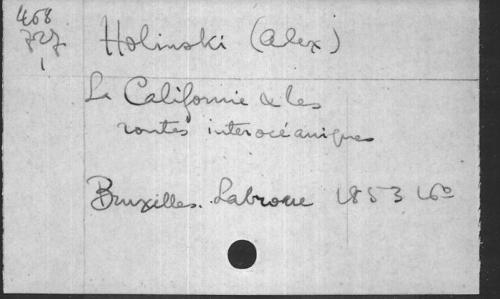 468
727
1
Holinski (Alex)
La Californie & les
routes interocéaniques
Bruxelles. Labroue 1853 16º